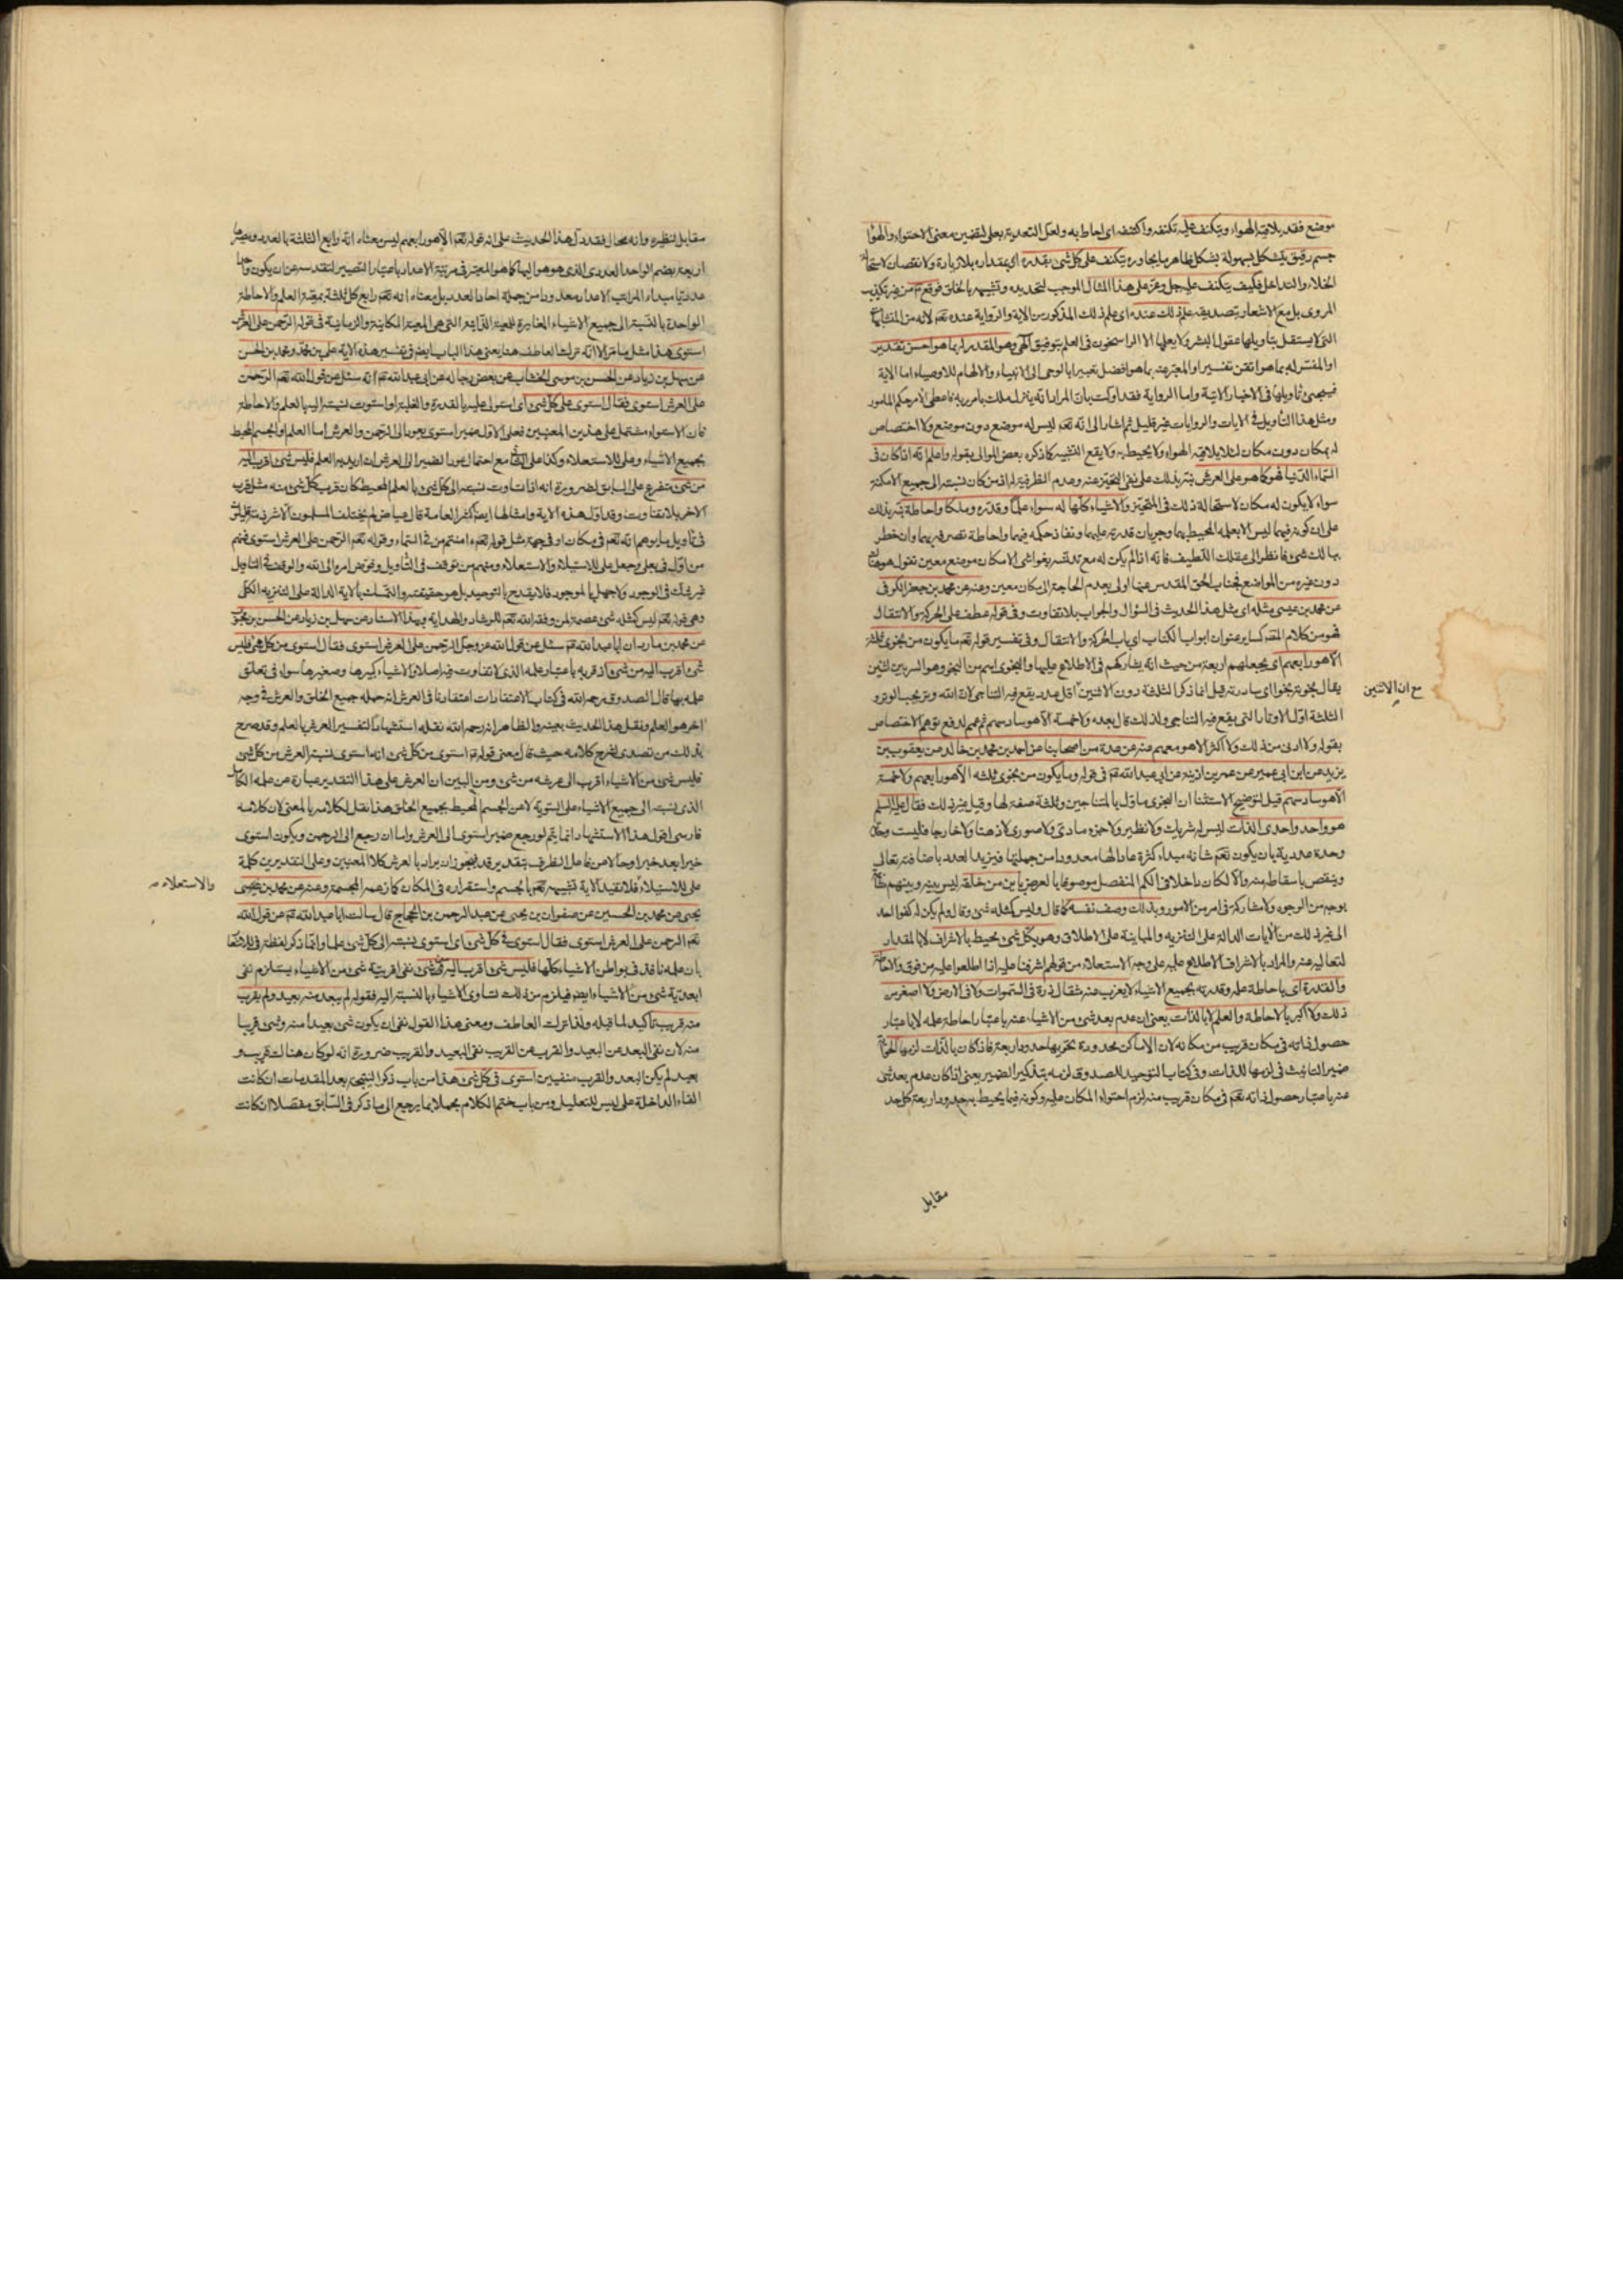 موضع فقد يلاقيه الهواء ويتكنف عليه تكنفه واكتنفه اى احاط به ولعل التعدية بعلى لتضمين معنى الاحتواء والهواء
جسم رقيق يتشكل بسهولة بشكل ظاهر ما يجاوره يتكنف على كل شئ بقدره اى بمقداره بلا زيادة ولا نقصان لاستحالة
الخلاء والتداخل فكيف يتكنف عليه جل وعز على هذا المثال الموجب لتحديده وتشبيهه بالخلق فوقع تم من غير تكذيب
المروى بل مع الاشعار بتصديقه علم ذلك عنده اى علم ذلك المذكور من الاية والرواية عنده تعم لانه من المتشابهات
التى لا يستقل بتاويلها عقول البشر ولا يعلمها الا الراسخون فى العلم بتوفيق الهى وهو المقدر له بما هو احسن تقدير
او المفسر له بما هو اتقن تفسيرا والمعبر عنه بما هو افضل تعبيرا بالوحى الى الانبياء والالهام للاوصياء اما الاية
فيجئ تاويلها فى الاخبار الاتية واما الرواية فقد اولت بان المراد انه ينزل ملك بامر ربه
ومثل هذا التاويل فى الايات والروايات غير قليل ثم اشار الى انه تعم ليس له موضع دون موضع ولا اختصاص
له بمكان دون مكان لئلا يلاقيه الهواء ولا يحيط به ولا يقع التشبيه كما ذكره بعض الموالى بقوله واعلم انه اذا كان فى
السماء الدنيا فهو كما هو على العرش نبه بذلك على نفى التحيز عنه وعدم الظرفية له اذ من كان نسبته الى جميع الامكنة
سواء لا يكون له مكان لاستحالة ذلك فى المتحيز والاشياء كلها له سواء علما وقدرة وملكا واحاطة نبه بذلك
على ان كونه فيهما ليس الا بعلمه المحيط بهما وجريان قدرته عليهما ونفاذ حكمه فيهما واحاطة تصرفه بهما وان خطر
ببالك شئ فانظر الى عقلك اللطيف فانه اذا لم يكن له مع تدنسه بغواشى الامكان موضع معين تقول هو هنا
دون غيره من المواضع فجناب الحق المقدس عنها اولى بعدم الحاجة الى مكان معين وعنه عن محمد بن جعفر الكوفى
عن محمد بن عيسى مثله اى مثل هذا الحديث فى السؤال والجواب بلا تفاوت وفى قوله عطف على الحركة والانتقال
فهو من كلام المصنف كساير عنوان ابواب الكتاب اى باب الحركة والانتقال وفى تفسير قوله تعم ما يكون من نجوى ثلثة
الا هو رابعهم اى يجعلهم اربعة من حيث انه يشاركهم فى الاطلاع عليها والنجوى اسم من النجو وهو السر بين اثنين
يقال نجوته نجوا اى ساررته قيل انما ذكر الثلثة دون الاثنين اقل عدد يقع فيه التناجى لان الله وتر يحب الوتر و
مع ان الاثنين
الثلثة اول الاوتار التى يقع فيه التناجى ولذلك قال بعده ولا خمسة الا هو سادسهم ثم عمم لدفع توهم الاختصاص
بقوله ولا ادنى من ذلك ولا اكثر الا هو معهم عنه عن عدة من اصحابنا عن احمد بن محمد بن خالد عن يعقوب بن
يزيد عن ابن ابى عمير عن عمر بن اذينة عن ابى عبد الله تم فى قوله وما يكون من نجوى ثلثه الا هو رابعهم ولا خمسة
الا هو سادسهم قيل لتوضيح الاستثنا ان النجوى ماول بالمتناجين وثلثة صفة لها وقيل غير ذلك فقال عليه السلم
هو واحد واحدى الذات ليس له شريك ولا نظير ولا جزء مادى ولا صورى لا ذهنا ولا خارجا فليست وحدته
وحدة عددية بان يكون تعم شانه مبداء كثرة عاد الها معدودا من جملتها فيزيد العدد باضافته تعالى
وينقص باسقاطه منه والا لكان داخلا فى الكم المنفصل موصوفا بالعرض باين من خلقه ليس بينه وبينهم
بوجه من الوجوه ولا مشاركة فى امر من الامور وبذلك وصف نفسه كما قال وليس كمثله شئ وقال ولم يكن له كفوا احد
الى غير ذلك من الايات الدالة على التنزيه والمباينة على الاطلاق وهو بكل شئ محيط بالاشراف لا بالمقدار
لتعاليه عنه والمراد بالاشراف الاطلاع عليه على وجه الاستعلاء من قولهم اشرفنا عليه اذا اطلعوا عليه من فوق والاحاطة
والقدرة اى باحاطة علمه وقدرته بجميع الاشياء لا يعزب عنه مثقال ذرة فى السموات ولا فى الارض ولا اصغر من
ذلك ولا اكبر بالاحاطة والعلم لا بالذات يعنى ان عدم بعد شئ من الاشياء عنه باعتبار احاطة علمه لا باعتبار
حصول ذاته فى مكان قريب من مكانه لان الاماكن محدودة تحويها حدود اربعة فاذا كان بالذات لزمها الحواية
ضمير التانيث فى لزمها للذات وفى كتاب التوحيد للصدوق لزمه بتذكير الضمير يعنى اذا كان عدم بعد شئ
عنه باعتبار حصول ذاته تعم فى مكان قريب منه لزم احتواء المكان عليه وكونه فيما يحيط به حدود اربعة كل حد
مقابل
مقابل لنظيره وانه محال فقد دل هذا الحديث على ان قوله تعم الا هو رابعهم ليس معناه انه رابع الثلثة بالعدد ومصيرها
اربعة بضم الواحد العددى الذى هو هو اليها كما هو المعتبر فى مرتبة الاعداد باعتبار التصيير لتقدسه عن ان يكون واحدا
عدديا مبداء المراتب الاعداد معدودا من جملة احاد العدد بل معناه انه تعم رابع كل ثلثة بمعية العلم والاحاطة
الواحدة بالنسبة الى جميع الاشياء المغايرة للمعية الذاتية التى هى المعية المكانية والزمانية فى قوله الرحمن على العرش
استوى هذا مثل ما مر الا انه ترك العاطف هنا يعنى هذا الباب ايضا فى تفسير هذه الاية على بن محمد ومحمد بن الحسن
عن سهل بن زياد عن الحسن بن موسى الخشاب عن بعض رجاله عن ابى عبد الله تم انه سئل عن قول الله تعم الرحمن
على العرش استوى فقال استوى على كل شئ اى استولى عليه بالقدرة والغلبة او استوت نسبته اليه بالعلم والاحاطة
فان الاستواء مشتمل على هذين المعنيين فعلى الاول ضمير استوى يعود الى الرحمن والعرش اما العلم او الجسم المحيط
بجميع الاشياء وعلى للاستعلاء وكذا على الثانى مع احتمال عود الضمير الى العرش ان اريد به العلم فليس شئ اقرب اليه
من شئ متفرع على السابق لضرورة انه اذا تساوت نسبته الى كل شئ بالعلم المحيط كان قرب كل شئ منه مثل قرب
الاخر بلا تفاوت وقد اول هذه الاية وامثالها ايضا اكثر العامة قال عياض لم يختلف المسلمون الا شرذمة قليلة
فى تاويل ما يوهم انه تعم فى مكان او فى جهة مثل قوله تعم ءامنتم من فى السماء وقوله تعم الرحمن على العرش استوى فمنهم
من اول فى بعلى وجعل على للاستيلاء والاستعلاء ومنهم من توقف فى التاويل وفوض امره الى الله والوقف فى التاويل
غير شك فى الوجود ولا جهل بالموجود فلا يقدح بالتوحيد بل هو حقيقته والتمسك بالاية الدالة على التنزيه الكلى
وهى قوله تعم ليس كمثله شئ عصمة لمن وفقه الله تعم للرشاد والهداية وبهذا الاسناد عن سهل بن زياد عن الحسن بن محبوب
عن محمد بن مارد ان ابا عبد الله تم سئل عن قول الله عز وجل الرحمن على العرش استوى فقال استوى من كل شئ فليس
شئ اقرب اليه من شئ اذ قربه باعتبار علمه الذى لا تفاوت فيه اصلا والاشياء كبيرها وصغيرها سواء فى تعلق
علمه بها قال الصدوق رحمه الله فى كتاب الاعتقادات اعتقادنا فى العرش انه جملة جميع الخلق والعرش فى وجه
اخر هو العلم ونقل هذا الحديث بعينه والظاهر انه رحمه الله نقله استشهادا لتفسير العرش بالعلم وقد صرح
بذلك من تصدى لشرح كلامه حيث قال معنى قوله تم استوى من كل شئ انه استوى نسبة العرش من كل شئ
فليس شئ من الاشياء اقرب الى عرشه من شئ ومن البين ان العرش على هذا التقدير عبارة عن علمه الكامل
الذى نسبته الى جميع الاشياء على السوية لا عن الجسم المحيط بجميع الخلق هذا نقل لكلامه بالمعنى لان كلامه
فارسى اقول هذا الاستشهاد انما يتم لو رجع ضمير استوى الى العرش واما ان رجع الى الرحمن ويكون استوى
خبرا بعد خبر او حالا عن فاعل الظرف بتقدير قد فيجوز ان يراد بالعرش كلا المعنيين وعلى التقديرين كلمة
على للاستيلاء فلا تفيد الاية تشبيهه تعم بالجسم واستقراره فى المكان كما زعمه المجسمة وعنه عن محمد بن يحيى
والاستعلاء صح
يحيى عن محمد بن الحسين عن صفوان بن يحيى عن عبد الرحمن بن الحجاج قال سالت ابا عبد الله تم عن قول الله
تعم الرحمن على العرش استوى فقال استوى فى كل شئ اى استوى نسبته الى كل شئ علما وانما ذكر لفظة فى للاشعار
بان علمه نافذ فى بواطن الاشياء كلها فليس شئ اقرب اليه من شئ نفى اقربية شئ من الاشياء يستلزم نفى
ابعدية شئ من الاشياء ايضا فيلزم من ذلك تساوى الاشياء بالنسبة اليه فقوله لم يبعد منه بعيد ولم يقرب
منه قريب تاكيد لما قبله ولذا ترك العاطف ومعنى هذا القول نفى ان يكون شئ بعيدا منه وشئ قريبا
منه لان نفى البعد عن البعيد والقرب عن القريب نفى البعيد والقريب ضرورة انه لو كان هناك قريب و
بعيد لم يكن البعد والقرب منفيين استوى فى كل شئ هذا من باب ذكر النتيجة بعد المقدمات ان كانت
الفاء الداخلة على ليس للتعليل ومن باب ختم الكلام مجملا بما يرجع الى ما ذكر فى السابق مفصلا ان كانت